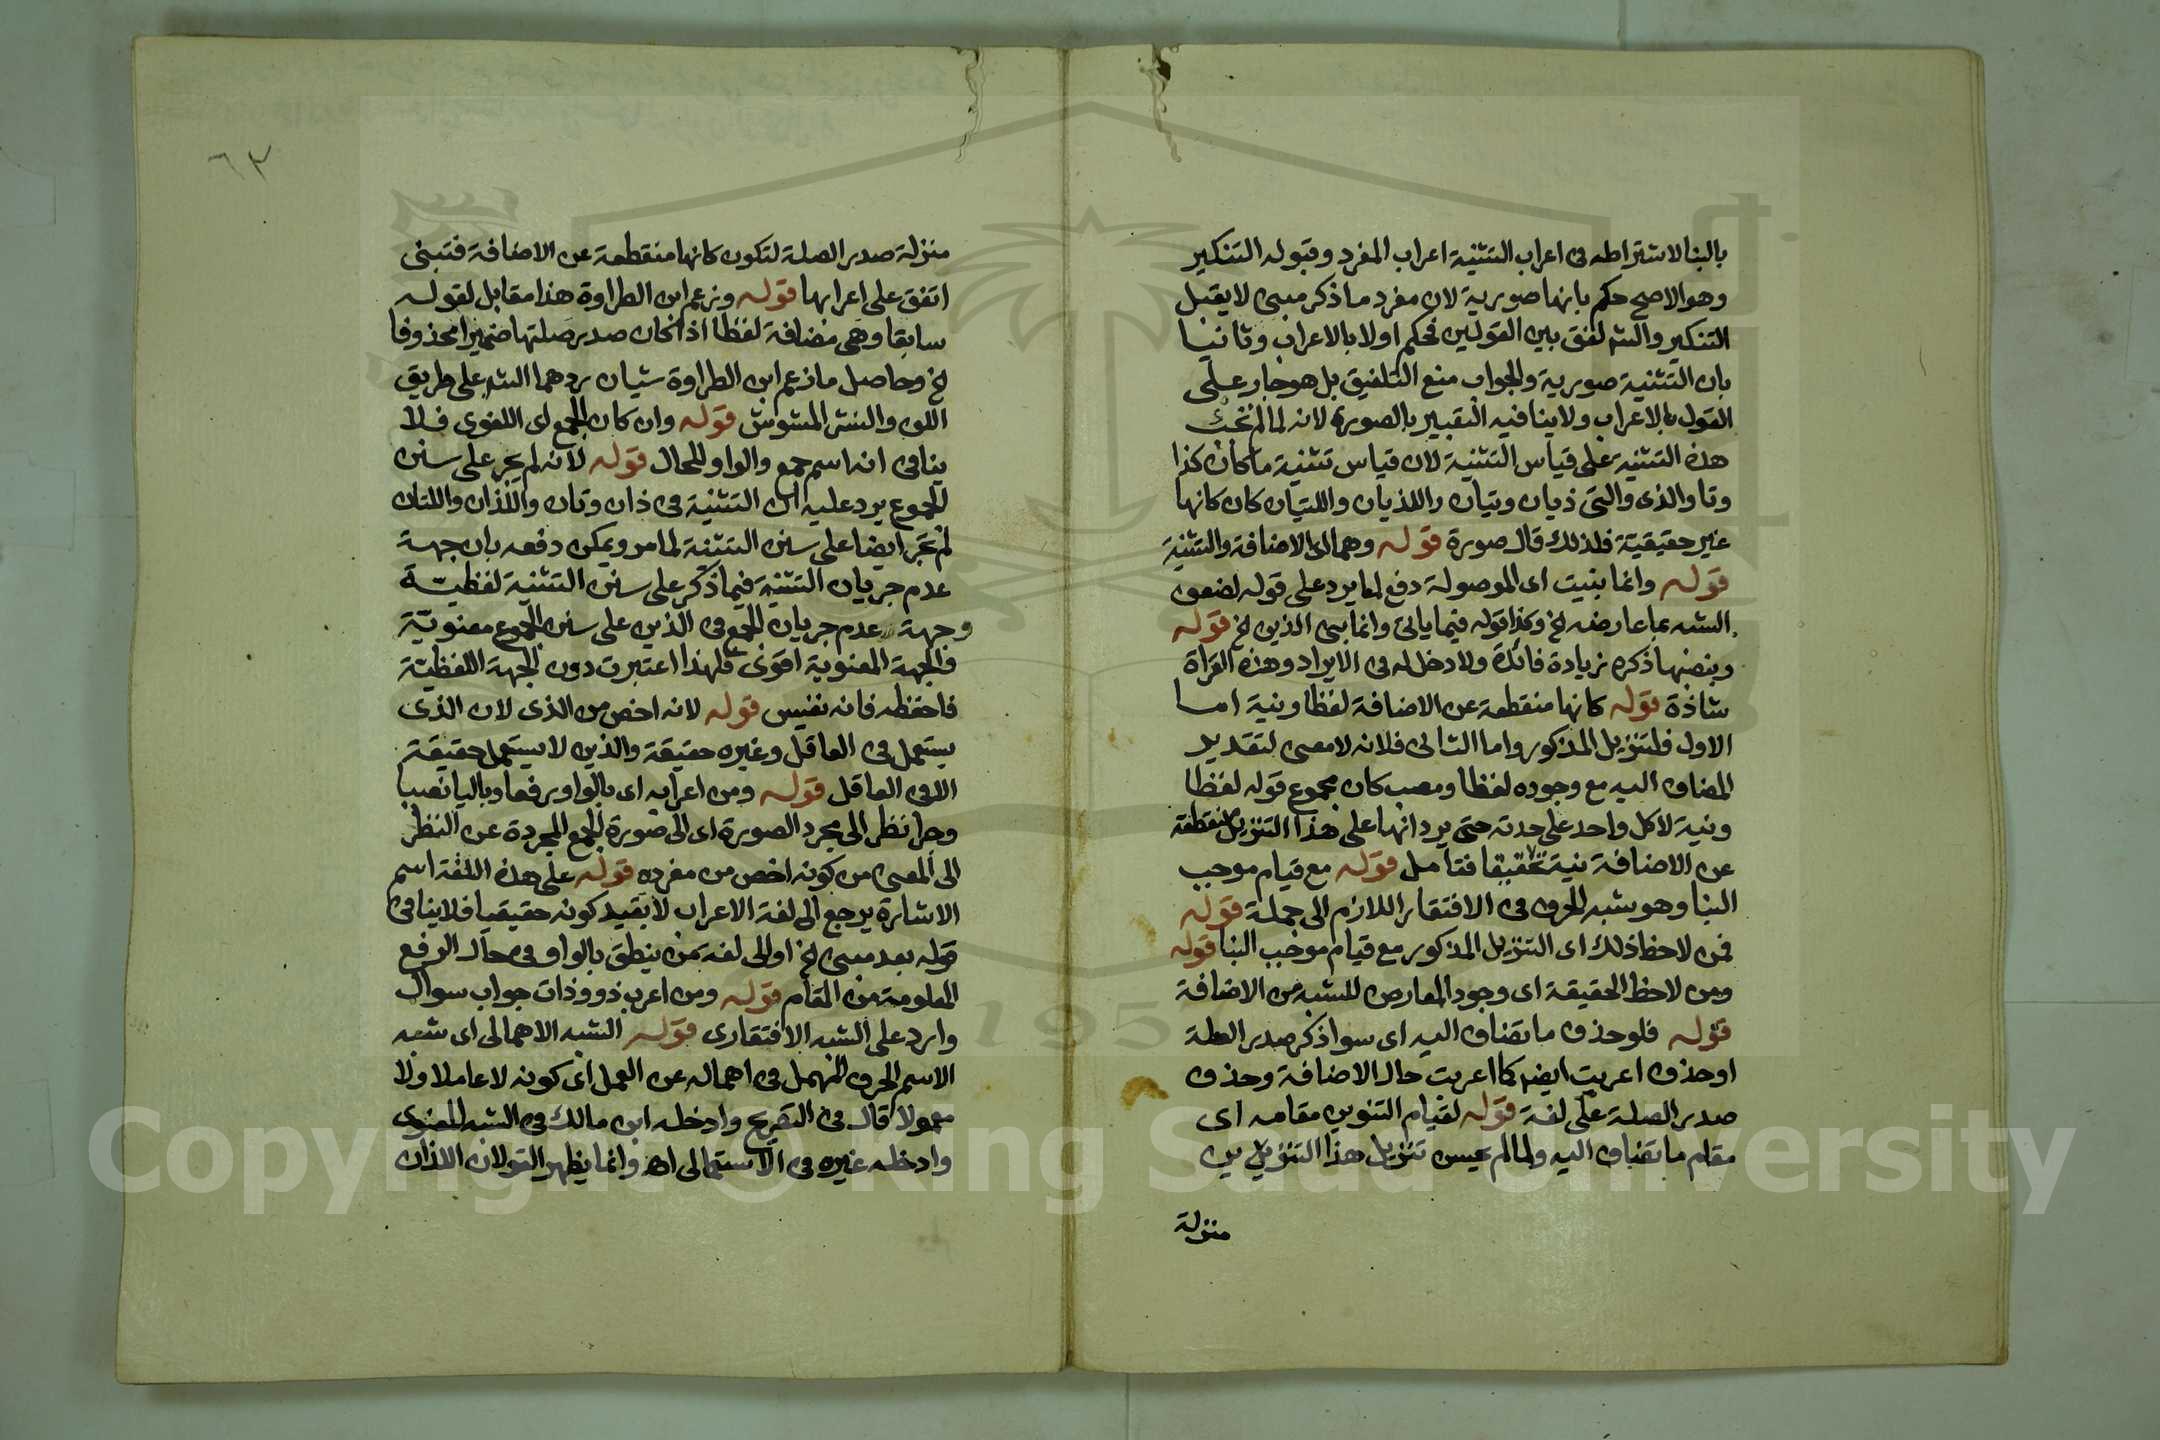 بالبنا لاشتراطه فى اعراب التثنية اعراب المفرد وقبوله التنكير
وهو الاصح حكم بانها صورية لان مفرد ما ذكر مبنى لا يقبل
التنكير والشه لفق بين القولين فحكم اولا بالاعراب وثانيا
بان التثنية صورية والجواب منع التلفيق بل هو جار على
القول بالاعراب ولا ينافيه التعبير بالصورة لانه لما لم تجئ
هذه التثنية على قياس التثنية لان قياس تثنية ما كان كذا
وتا والذى والتى ذيان وتيان واللذيان واللتيان كان كانها
غير حقيقية فلذلك قال صورة قوله وهما اى الاضافة والتثنية
قوله وانما بنيت اى الموصولة دفع لما يرد على قوله لضعف
الشبه بما عارضه الخ وكذا قوله فيما ياتى وانما بنى الذين الخ قوله
وبنصبها ذكره زيادة فائدة ولا دخل له فى الايراد وهذه القراة
شاذة قوله كانها منقطعة عن الاضافة لفظا ونية اما
الاول فلتنزيل المذكور واما الثانى فلانه لا معنى لتقدير
المضاف اليه مع وجوده لفظا ومصب كان مجموع قوله لفظا
ونية لا كل واحد على حدته حتى يرد انها على هذا التنزيل منقطعة
عن الاضافة نية تحقيقا فتامل قوله مع قيام موجب
البنا وهو شبه الحرف فى الافتقار اللازم الى جملة قوله
فمن لاحظ ذلك اى التنزيل المذكور مع قيام موجب البنا قوله
ومن لاحظ الحقيقة اى وجود المعارض للشبه من الاضافة
قوله فلو حذف ما تضاف اليه اى سوا ذكر صدر الصلة
او حذف اعربت ايضا كما اعربت حال الاضافة وحذف
صدر الصلة على لغة قوله لقيام التنوين مقامه اى
مقام ما تضاف اليه ولما لم تنزيل هذا التنزيل
منزلة
٦٣
منزلة صدر الصلة لتكون كانها منقطعة عن الاضافة فتبنى
اتفق على اعرابها قوله وزعم ابن الطراوة هذا مقابل لقوله
سابقا وهى مضافة لفظا اذا كان صدر صلتها ضميرا محذوفا
الخ وحاصل ما زعم ابن الطراوة شيان ردهما الشه على طريق
اللف والنشر المشوش قوله وان كان الجمع اى اللغوى فلا
ينافى انه اسم جمع والواو للحال قوله لانه لم يجر على سنن
الجموع يرد عليه ان التثنية فى ذان وتان واللذان واللتان
لم تجر ايضا على سنن التثنية لما مر ويمكن دفعه بان جهة
عدم جريان التثنية فيما ذكر على سنن التثنية لفظية
وجهة عدم جريان الجمع فى الذين على سنن الجموع معنوية
فالجهة المعنوية اقوى فلهذا اعتبرت دون الجهة اللفظية
فاحفظه فانه نفيس قوله لانه اخص من الذى لان الذى
يستعمل فى العاقل وغيره حقيقة والذين لا يستعمل حقيقة
الا فى العاقل قوله ومن اعرابه اى بالواو رفعا وباليا نصبا
وجرا نظر الى مجرد الصورة اى الى صورة الجمع المجردة عن النظر
الى المعنى من كونه اخص من مفرده قوله على هذه اللغة اسم
الاشارة يرجع الى لغة الاعراب لا بقيد كونه حقيقيا فلا ينافى
قوله بعد مبنى الخ او الى لغة من ينطق بالواو فى حال الرفع
المعلومة من المقام قوله ومن اعرب ذو وذات جواب سوال
وارد على الشبه الافتقارى قوله الشبه الاهمالى اى شبه
الاسم الحرف المهمل فى اهماله عن العمل اى كونه لا عاملا ولا
معمولا قال فى التصريح وادخله ابن مالك فى الشبه المعنوى
وادخله غيره فى الاستعمالى اه وانما يظهر القولان اللذان
Copyright © King Saud University
1957